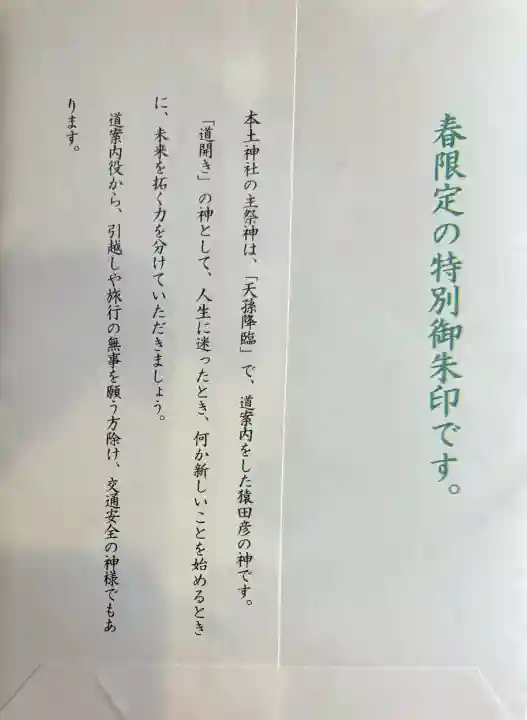 春限定の特別御朱印です。
本土神社の主祭神は、「天孫降臨」で、道案内をした猿田彦の神です。
「道開き」の神として、人生に迷ったとき、何か新しいことを始めるとき
に、未来を拓く力を分けていただきましょう。
道案内役から、引越しや旅行の無事を願う方除け、交通安全の神様でもあ
ります。